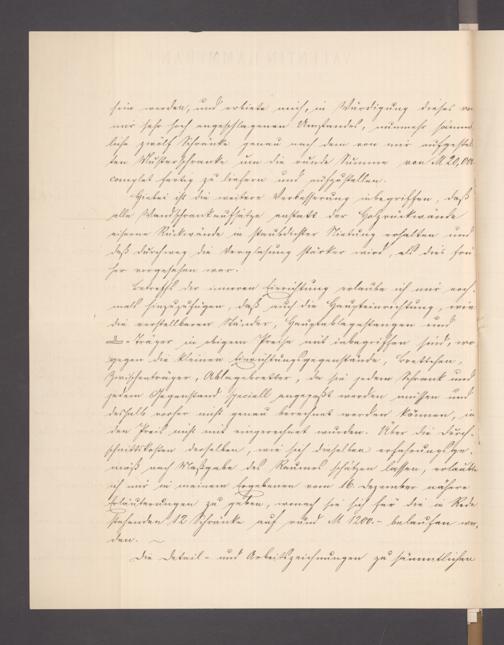 sein werden, und erbiete mich, in Würdigung dieses von
mir sehr hoch angeschlagenen Umstandes, nunmehr sämmt-
liche zwölf Schränke genau nach dem von mir aufgestell-
ten Musterschranke um die runde Summe von M 20,000
complet fertig zu liefern und aufzustellen.
Hiebei ist die weitere Verbesserung inbegriffen, daß
alle Wandschrankaufsätze anstatt der Holzrückwände
eiserne Rückwände in staubdichter Nietung erhalten und
daß durchweg die Verglasung stärker wird, als dies frü-
her vorgesehen war.
Betreffs der inneren Einrichtung erlaube ich mir noch-
mals hinzuzufügen, daß auch die Haupteinrichtung, wie
die verstellbaren Ständer, Hauptablagestangen und
-Träger in obigem Preise mit inbegriffen sind, wo-
gegen die kleinen Einrichtungsgegenstände, Brettchen,
Zwischenträger, Ablagebretter, da sie jedem Schrank und
jedem Gegenstand speciell angepaßt werden müssen und
deshalb vorher nicht genau berechnet werden können, in
den Preis nicht mit eingerechnet wurden. Über die Durch-
schnittskosten derselben, wie sich dieselben erfahrungsge-
mäß nach Maßgabe des Raumes schätzen lassen, erlaubte
ich mir in meinem Ergebenen vom 16. Dezember nähere
Erläuterungen zu geben, wonach sie sich für die in Rede
stehenden 12 Schränke auf rund M 1200.- belaufen wer-
den. ~
Die Detail- und Arbeitszeichnungen zu sämmtlichen